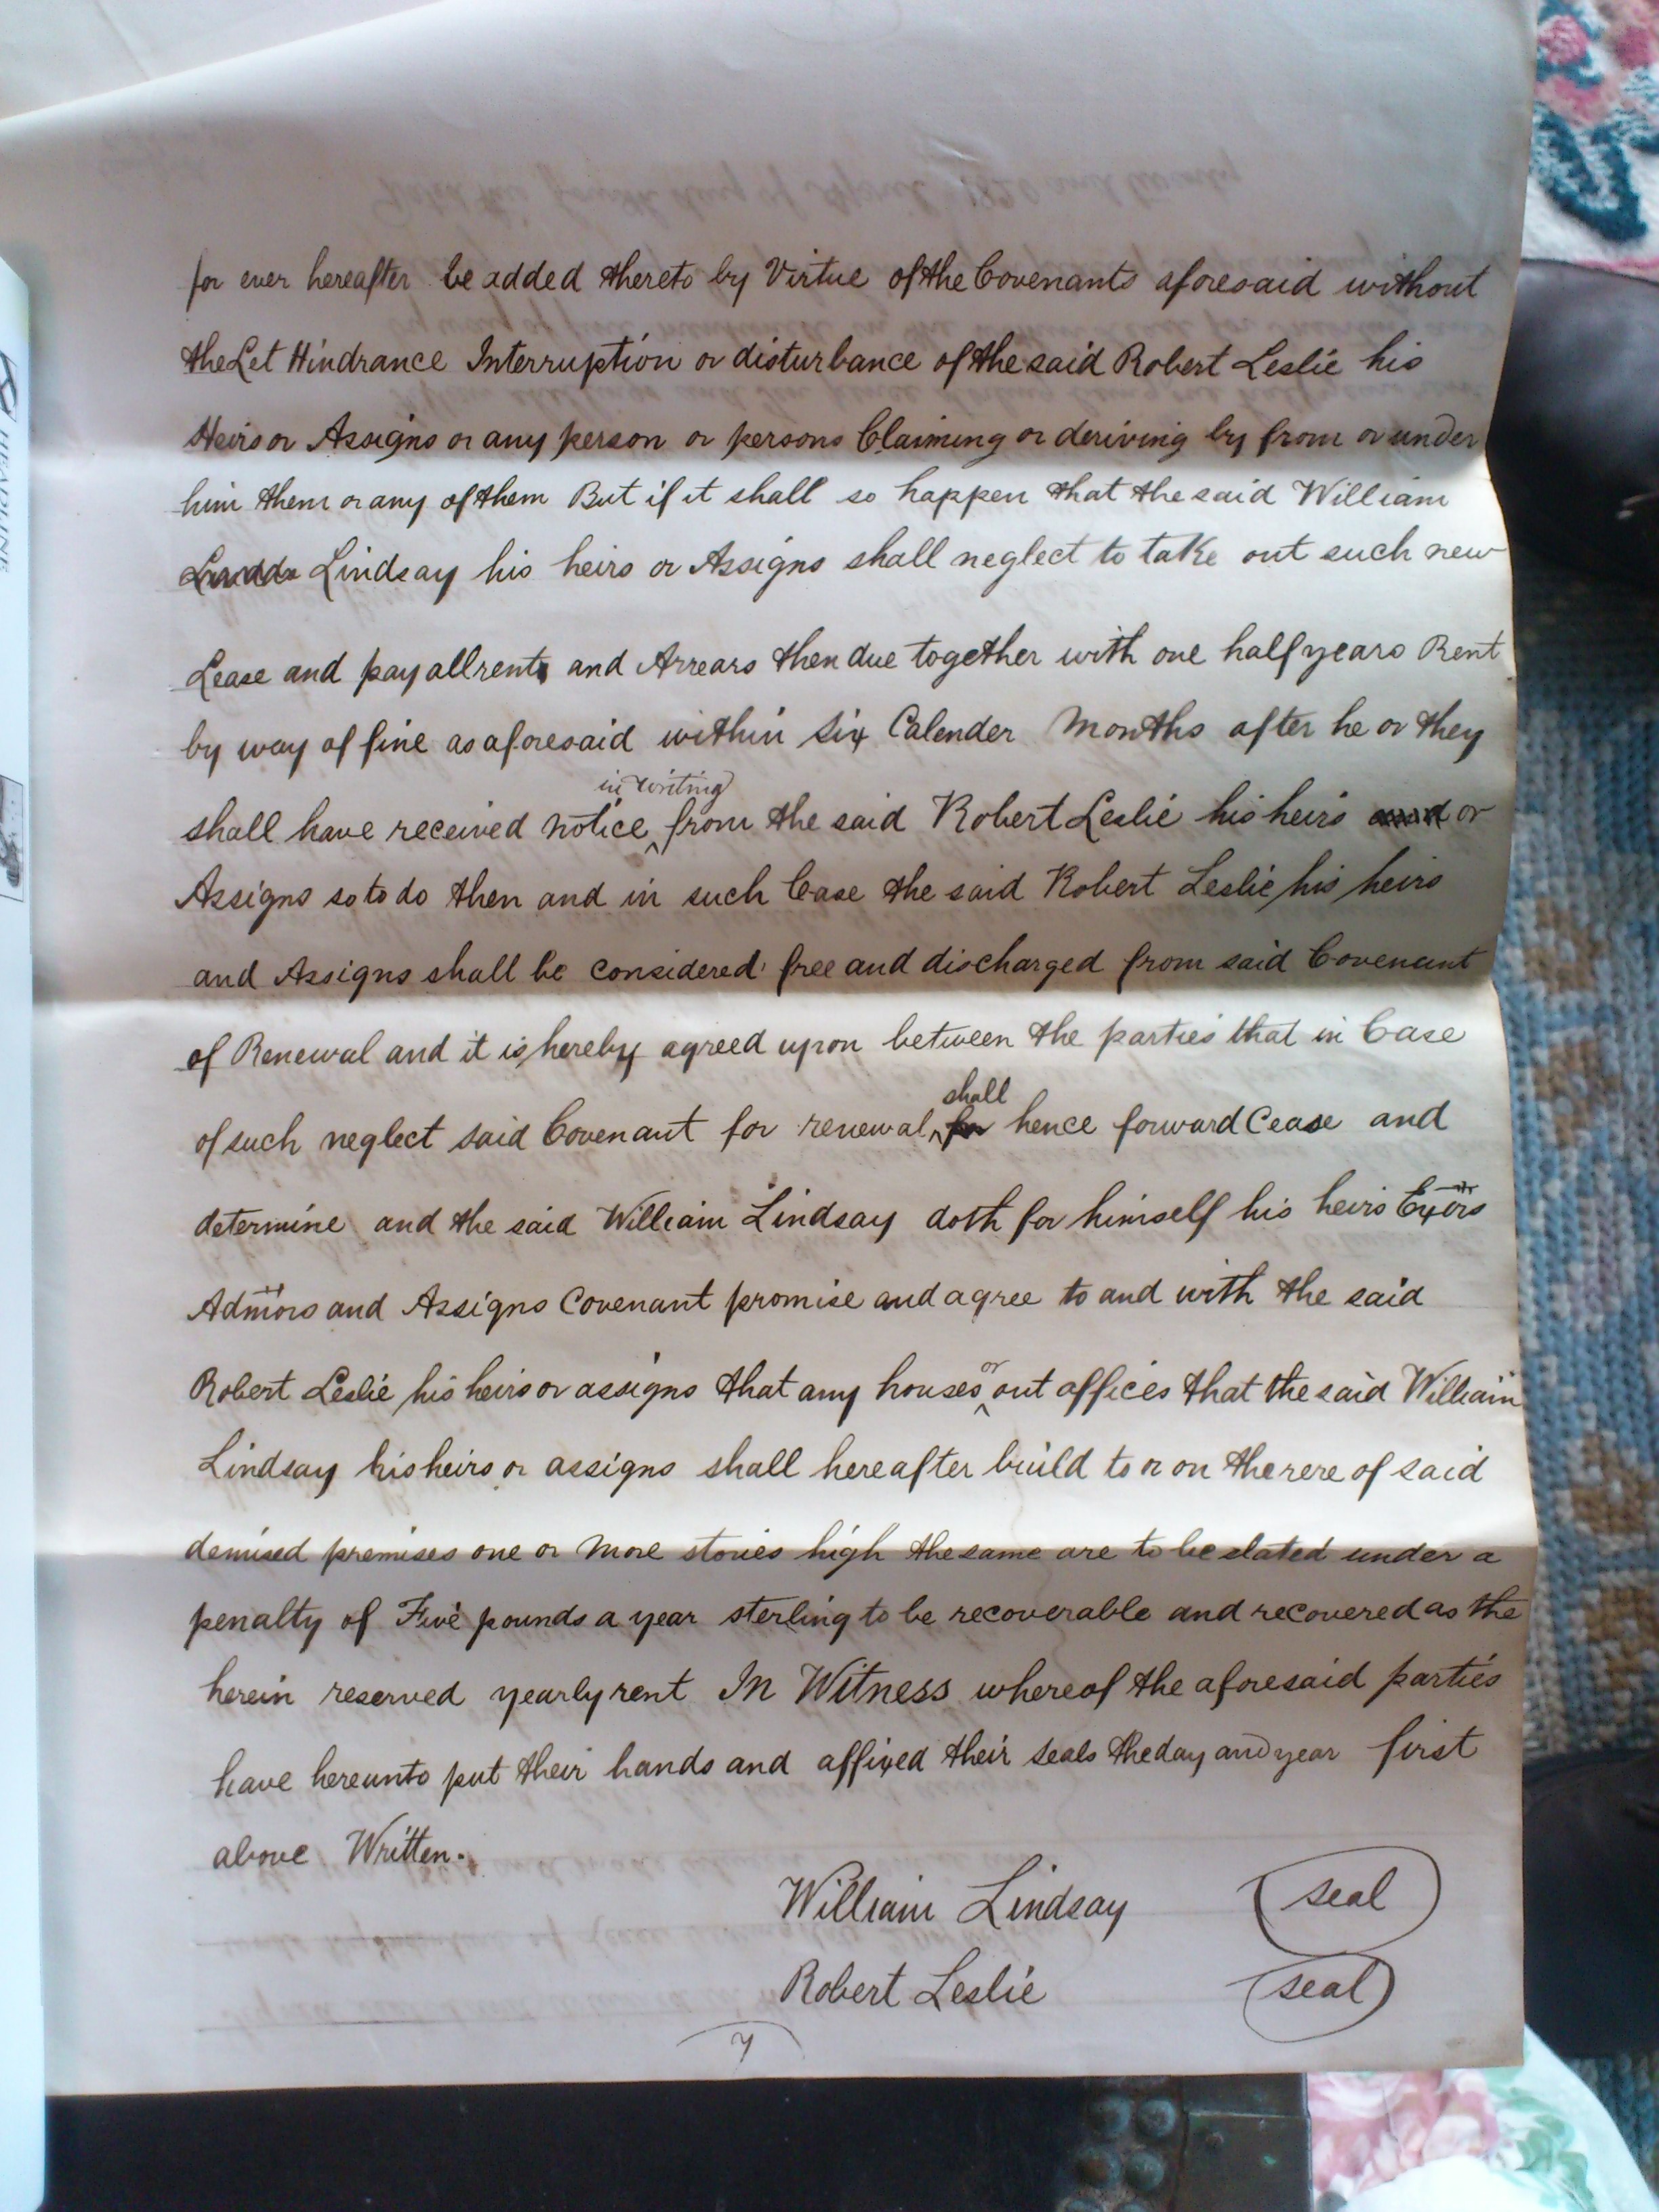 for ever hereafter be added thereto by Virtue of the Covenants aforesaid without
the Let Hindrance Interruption or disturbance of the said Robert Leslie his
Heirs or Assigns or any person or persons Claiming or deriving by from or under
him them or any of them But if it shall so happen that the said William
Lindsay his heirs or Assigns shall neglect to take out such new
Lease and pay all rents and Arrears then due together with one half years Rent
by way of fine as aforesaid within six Calender Months after he or they
in writing
shall have received notice from the said Robert Leslie his heirs or
Assigns so to do then and in such Case the said Robert Leslie his heirs
and Assigns shall be considered free and discharged from said Covenant
of Renewal and it is hereby agreed upon between the parties that in Case
shall
of such neglect said Covenant for renewal hence forward Cease and
determine and the said William Lindsay doth for himself his heirs Exors
Admors and Assigns Covenant promise and agree to and with the said
or
Robert Leslie his heirs or assigns that any houses out offices that the said William
Lindsay his heirs or assigns shall hereafter build to or on the rere of said
demised premises one or More stories high the same are to be slated under a
penalty of Five pounds a year sterling to be recoverable and recovered as the
herein reserved yearly rent In Witness whereof the aforesaid parties
have hereunto put their hands and affixed their seals the day and year first
above Written.
William Lindsay seal
Robert Leslie seal
7